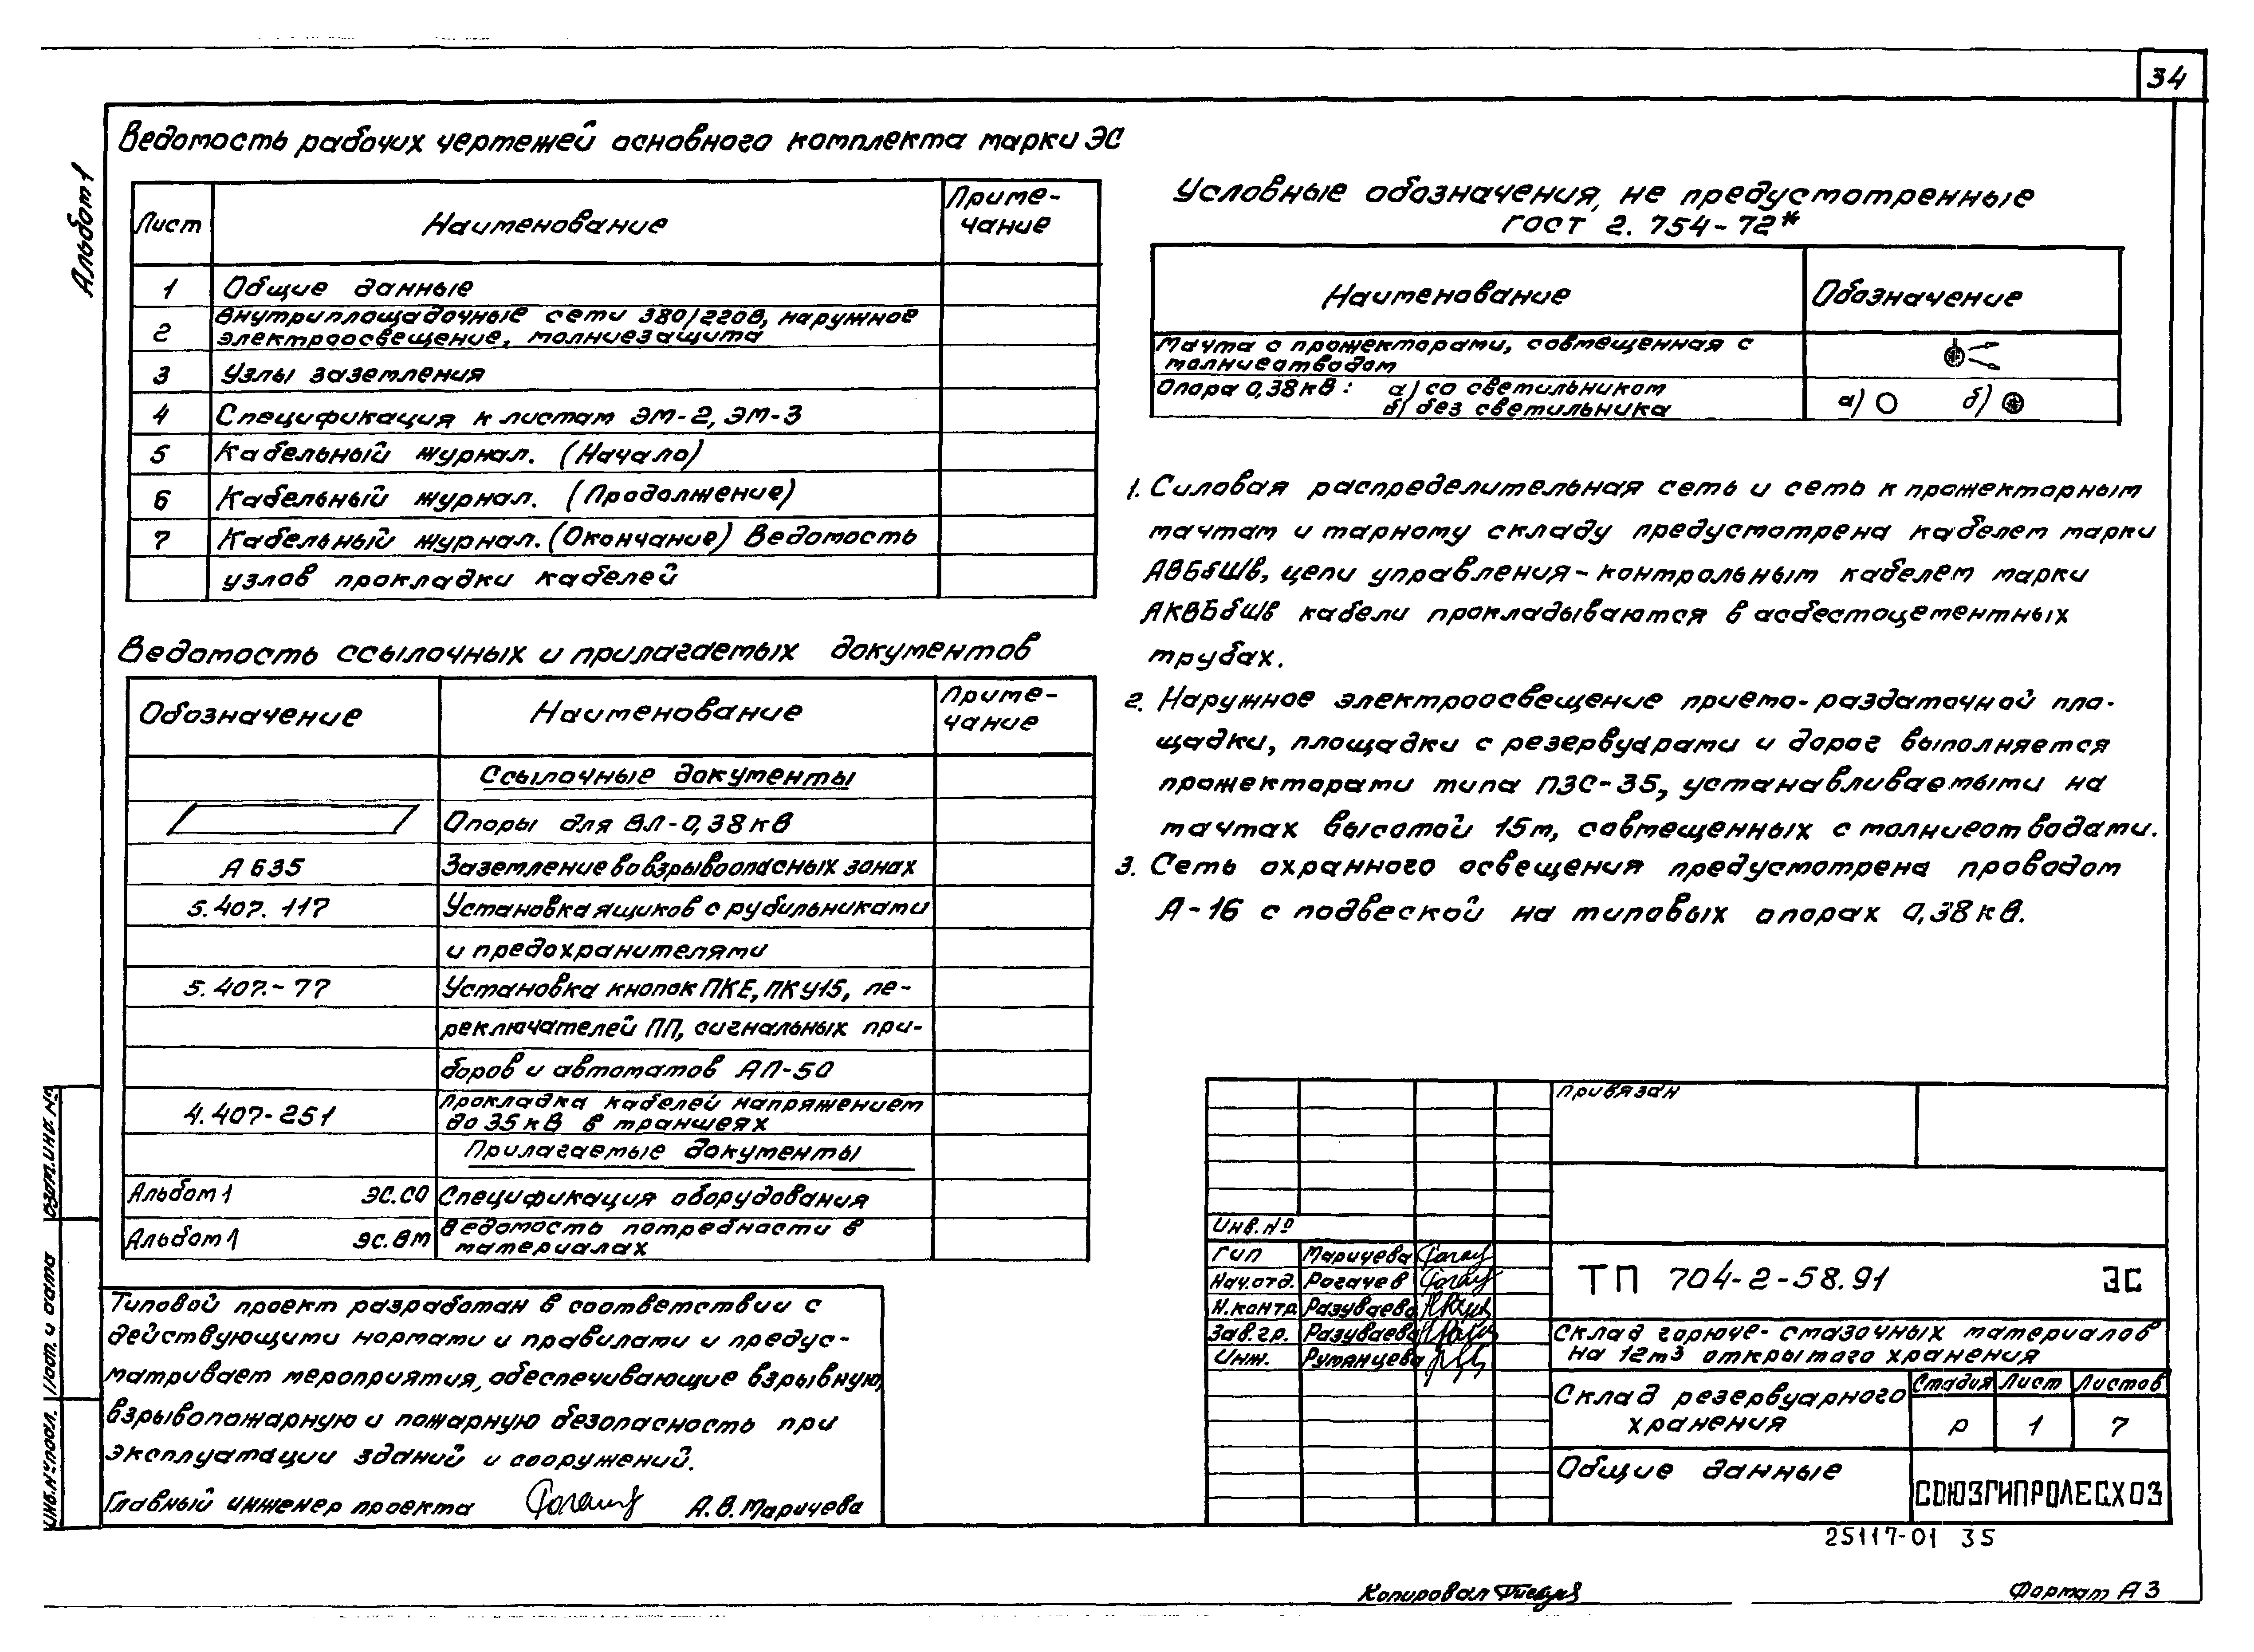 34
Альбом 1
Ведомость рабочих чертежей основного комплекта марки ЭС
Лист Наименование Приме-
чание
1 Общие данные
2 Внутриплощадочные сети 380/220В, наружное
электроосвещение, молниезащита
3 Узлы заземления
4 Спецификация к листам ЭМ-2, ЭМ-3
5 Кабельный журнал. (Начало)
6 Кабельный журнал. (Продолжение)
7 Кабельный журнал. (Окончание) Ведомость
узлов прокладки кабелей
Ведомость ссылочных и прилагаемых документов
Обозначение Наименование Приме-
чание
Ссылочные документы
Опоры для ВЛ-0,38кВ
А 635 Заземление во взрывоопасных зонах
5.407.117 Установка ящиков с рубильниками
и предохранителями
5.407.-77 Установка кнопок ПКЕ, ПКУ15, пе-
реключателей ПП, сигнальных при-
боров и автоматов АП-50
4.407-251 Прокладка кабелей напряжением
до 35кВ в траншеях
Прилагаемые документы
Альбом 1 ЭС.СО Спецификация оборудования
Альбом 1 ЭС.ВМ Ведомость потребности в
материалах
Типовой проект разработан в соответствии с
действующими нормами и правилами и предус-
матривает мероприятия, обеспечивающие взрывную,
взрывопожарную и пожарную безопасность при
эксплуатации зданий и сооружений.
Главный инженер проекта А.В. Маричева
Условные обозначения, не предусмотренные
ГОСТ 2.754-72*
Наименование Обозначение
Мачта с прожекторами, совмещенная с
молниеотводом
Опора 0,38кВ: а) со светильником
б) без светильника
а) б)
1. Силовая распределительная сеть и сеть к прожекторным
мачтам и тарному складу предусмотрена кабелем марки
АВБбШв, цепи управления-контрольным кабелем марки
АКВБбШв кабели прокладываются в асбестоцементных
трубах.
2. Наружное электроосвещение приемо-раздаточной пло-
щадки, площадки с резервуарами и дорог выполняется
прожекторами типа ПЗС-35, устанавливаемыми на
мачтах высотой 15м, совмещенных с молниеотводами.
3. Сеть охранного освещения предусмотрена проводом
А-16 с подвеской на типовых опорах 0,38кВ.
Привязан
Инв. №
ГИП Маричева
Нач.отд. Рогачев
Н.контр Разуваева
Зав.гр. Разуваева
Инж. Румянцева
ТП 704-2-58.91 ЭС
Склад горюче-смазочных материалов
на 12м3 открытого хранения
Склад резервуарного
хранения
Стадия Лист Листов
Р 1 7
Общие данные
СОЮЗГИПРОЛЕСХОЗ
25117-01 35
Копировал
Формат А3
Взам.инв. №
Подп. и дата
Инв.№ подл.